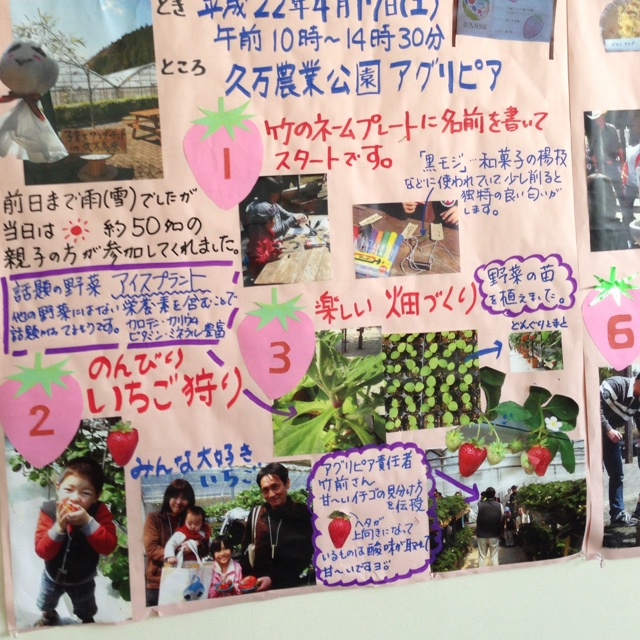 とき 平成22年4月17日(土)
午前10時〜14時30分
ところ 久万農業公園 アグリピア
1
竹のネームプレートに名前を書いて
スタートです。
「黒モジ」…和菓子の楊枝
などに使われていて、少し削ると
独特の良い匂いが
します。
前日まで雨(雪)でしたが
当日は 約50名の
親子の方が参加してくれました。
話題の野菜 アイスプラント
他の野菜にはない栄養素を含むことで
カロテン・カリウム
ビタミン・ミネラル豊富
2
のんびり
いちご狩り
みんな大好き
いちご
3
楽しい 畑づくり
野菜の苗
を植えました。
どんぐりとまと
アグリピア責任者
竹前さん
甘〜いイチゴの見分け方
を伝授
ヘタが
上向きになって
いるものは酸味が取れて
甘〜いですヨ
6